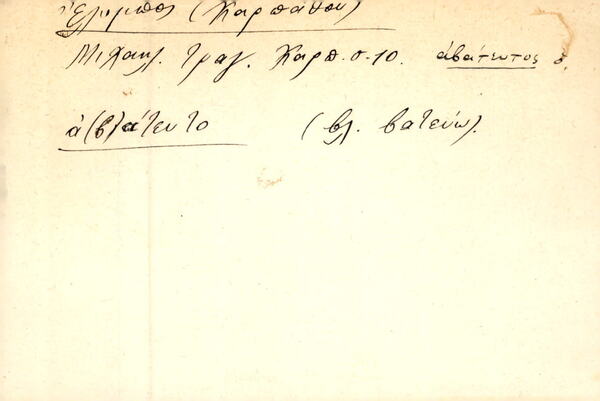 Ἔλυμπος (Καρπάθου)
Μιχαηλ. Τραγ. Καρπ. σ. 10. ἀβάτευτος ὁ.
ἀ(β)άτευτο (βλ. βατεύω).